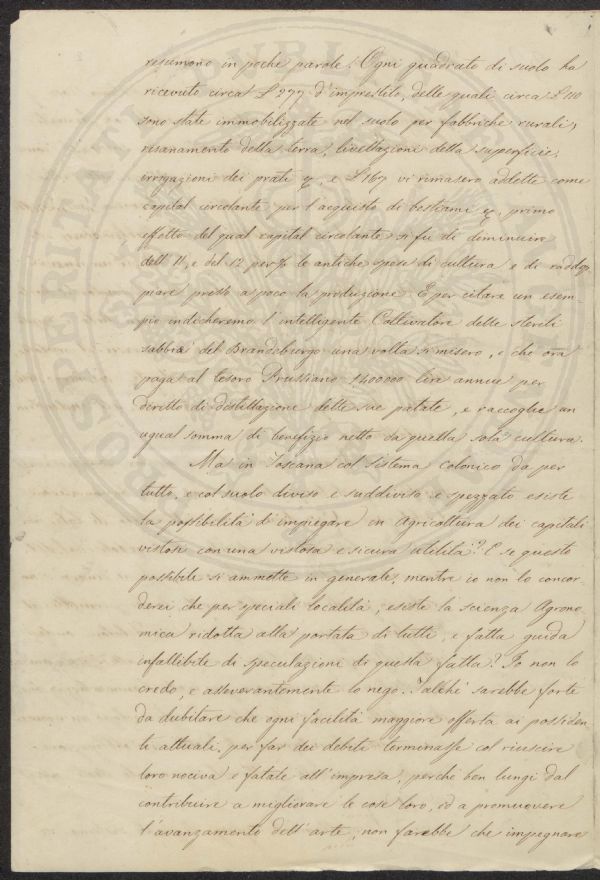 risumono in poche parole. Ogni quadrato di suolo ha
ricevuto circa £ 277 d'imprestito, delle quali circa £ 110
sono state immobilizzate nel suolo per fabbriche rurali,
risanamento della terra, livellazione della superficie,
irrigazioni dei prati &, e £ 167 vi rimasero addette come
capital circolante per l'acquisto di bestiami &, primo
effetto del qual capital circolante si fù di deminuire
dell' 11, e del 12 per % le antiche spese di cultura e di raddop,
piare presso a poco la produzione. E per citare un esem-
pio indicheremo l'intelligente Coltivatore delle sterili
sabbie del Brandeburgo una volta sì misero, e che ora
paga al tesoro Prussiano 1400000 lire annue per
diritto di distillazione delle sue patate, e raccoglie un
ugual somma di benefizio netto da quella sola cultura.
Ma in Toscana col sistema colonico da per
tutto, e col suolo diviso e suddiviso e spezzato esiste
la possibilità d'impiegare in agricoltura dei capitali
vistosi con una vistosa e sicura utilità? E se questo
possibile si ammette in generale, mentre io non lo concor-
derei che per speciali località, esiste la scienza Agrono-
mica ridotta alla portata di tutti, e fatta guida
infallibile di speculazioni di questa fatta? Io non lo
credo, e asseverantemente lo nego. Talchè sarebbe forte
da dubitare che ogni facilità maggiore offerta ai possiden
ti attuali, per far dei debiti terminasse col riuscire
loro nociva e fatale all'impresa, perchè ben lungi dal
contribuire a migliorare le cose loro, ed a promuovere
l'avanzamento dell'arte, non farebbe che impegnare
PROSPERITATI PUBLICAE